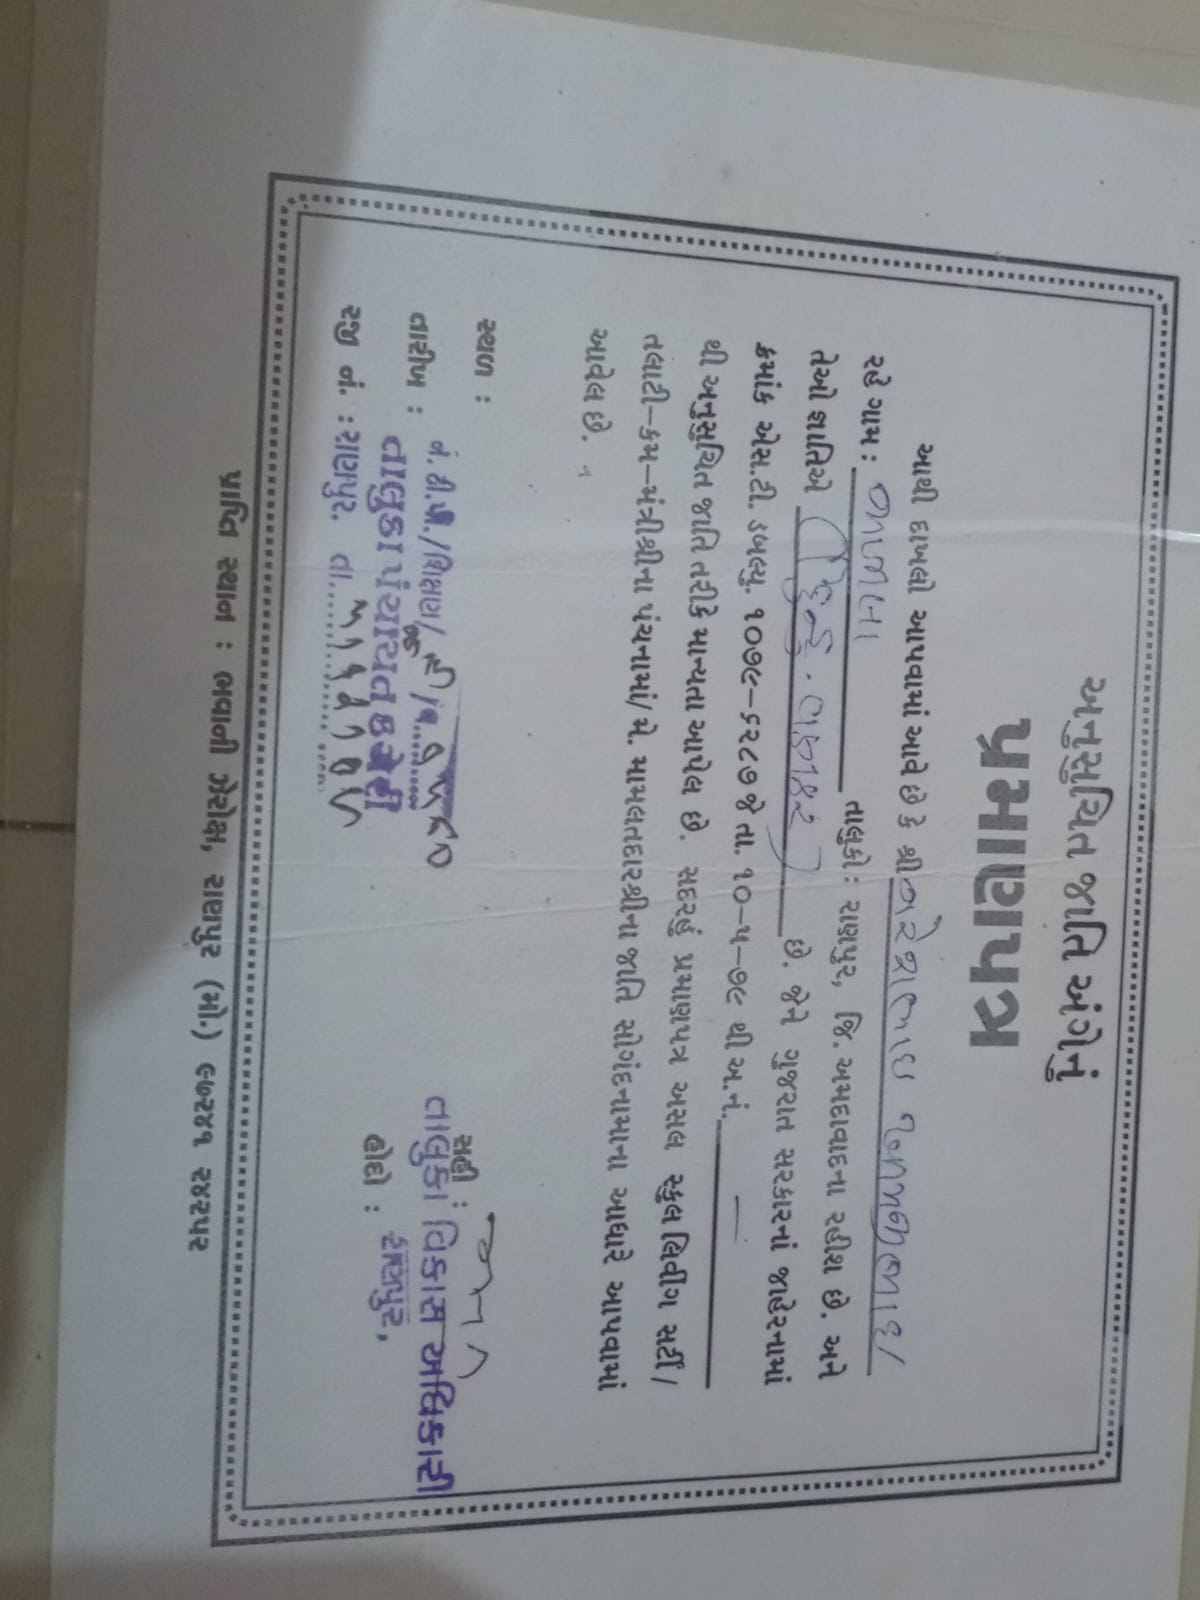 અનુસુચિત જાતિ અંગેનું
પ્રમાણપત્ર
આથી દાખલો આપવામાં આવે છે કે શ્રી નરેશભાઇ
રહે ગામ : તાલુકો : રાણપુર, જિ. અમદાવાદના રહીશ છે. અને
તેઓ જ્ઞાતિએ છે. જેને ગુજરાત સરકારનાં જાહેરનામાં
ક્રમાંક એસ.ટી. ડબલ્યુ. ૧૦૭૯–૬૨૮૭ જે તા. ૧૦–૫–૭૯ થી અ.નં. —
થી અનુસુચિત જાતિ તરીકે માન્યતા આપેલ છે. સદરહું પ્રમાણપત્ર અસલ સ્કુલ લિવીંગ સર્ટી/
તલાટી–કમ–મંત્રીશ્રીના પંચનામાં/ મે. મામલતદારશ્રીના જાતિ સોગંદનામાના આધારે આપવામાં
આવેલ છે.
સ્થળ :
તારીખ :
તાલુકા પંચાયત કચેરી
રજી નં. : રાણપુર. તા.
સહી :
તાલુકા વિકાસ અધિકારી
હોદ્દો : રાણપુર.
પ્રાપ્તિ સ્થાન : ભવાની ઝેરોક્ષ, રાણપુર (મો.) ૯૭૨૪૧ ૨૪૨૫૨